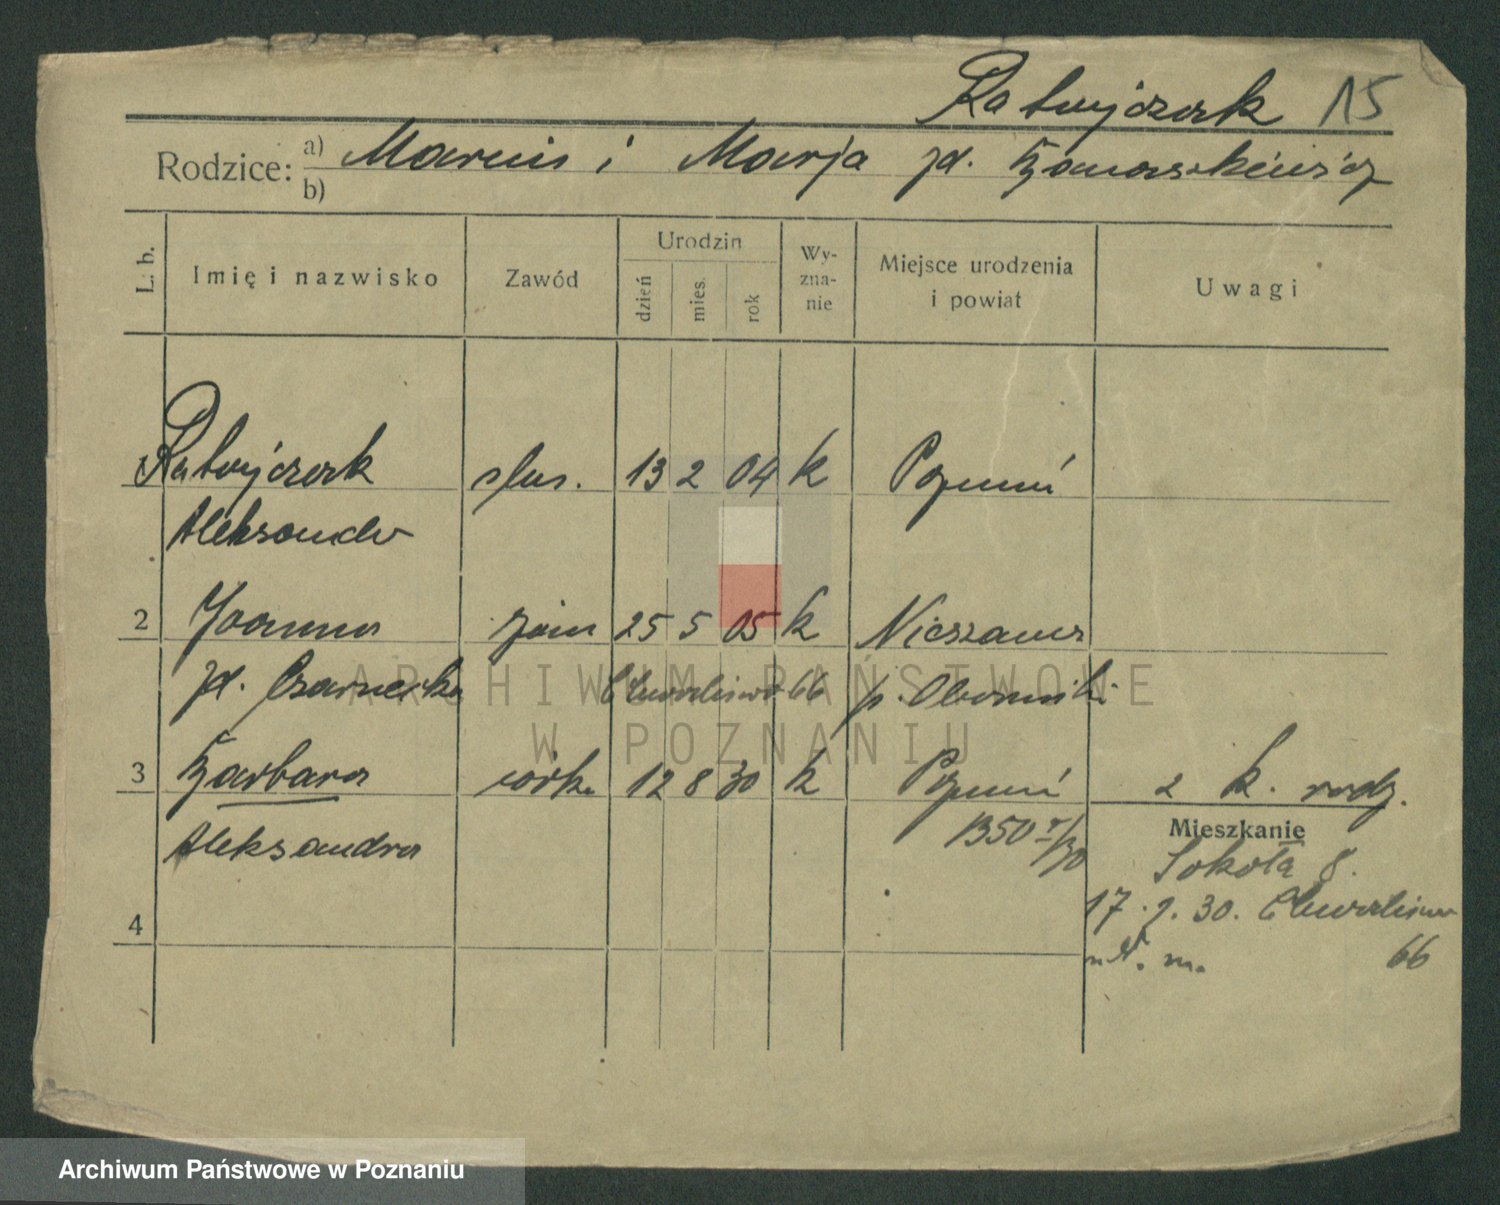 Ratajczak 15
Rodzice: a) Marcin i Marja zd. Tomaszkiewicz
b)
L. b. Imię i nazwisko Zawód Urodzin dzień mies. rok Wyznanie Miejsce urodzenia i powiat Uwagi
Ratajczak ślus. 13 2 04 k Poznań
Aleksander
2 Joanna żona 25 5 05 k Nieszawa
zd. Czarnecka 66 p. Oborniki
3 Barbara córka 12 8 30 k Poznań 2 k. rodz.
Aleksandra 1350 Mieszkanie
Sokoła 8.
17. 9. 30.
4 66
ARCHIWUM PAŃSTWOWE
W POZNANIU
Archiwum Państwowe w Poznaniu